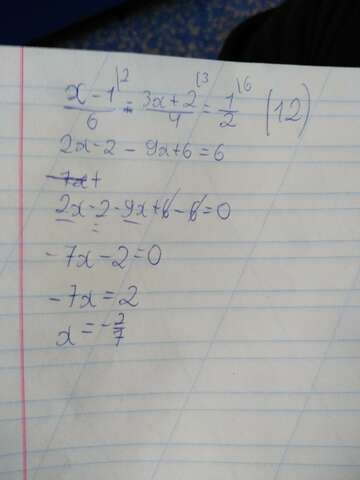 x - 1 |2 / 6 - 3x + 2 |3 / 4 = 1 |6 / 2 (12)
2x - 2 - 9x + 6 = 6
-7x +
2x - 2 - 9x + 6 - 6 = 0
-7x - 2 = 0
-7x = 2
x = -2/7